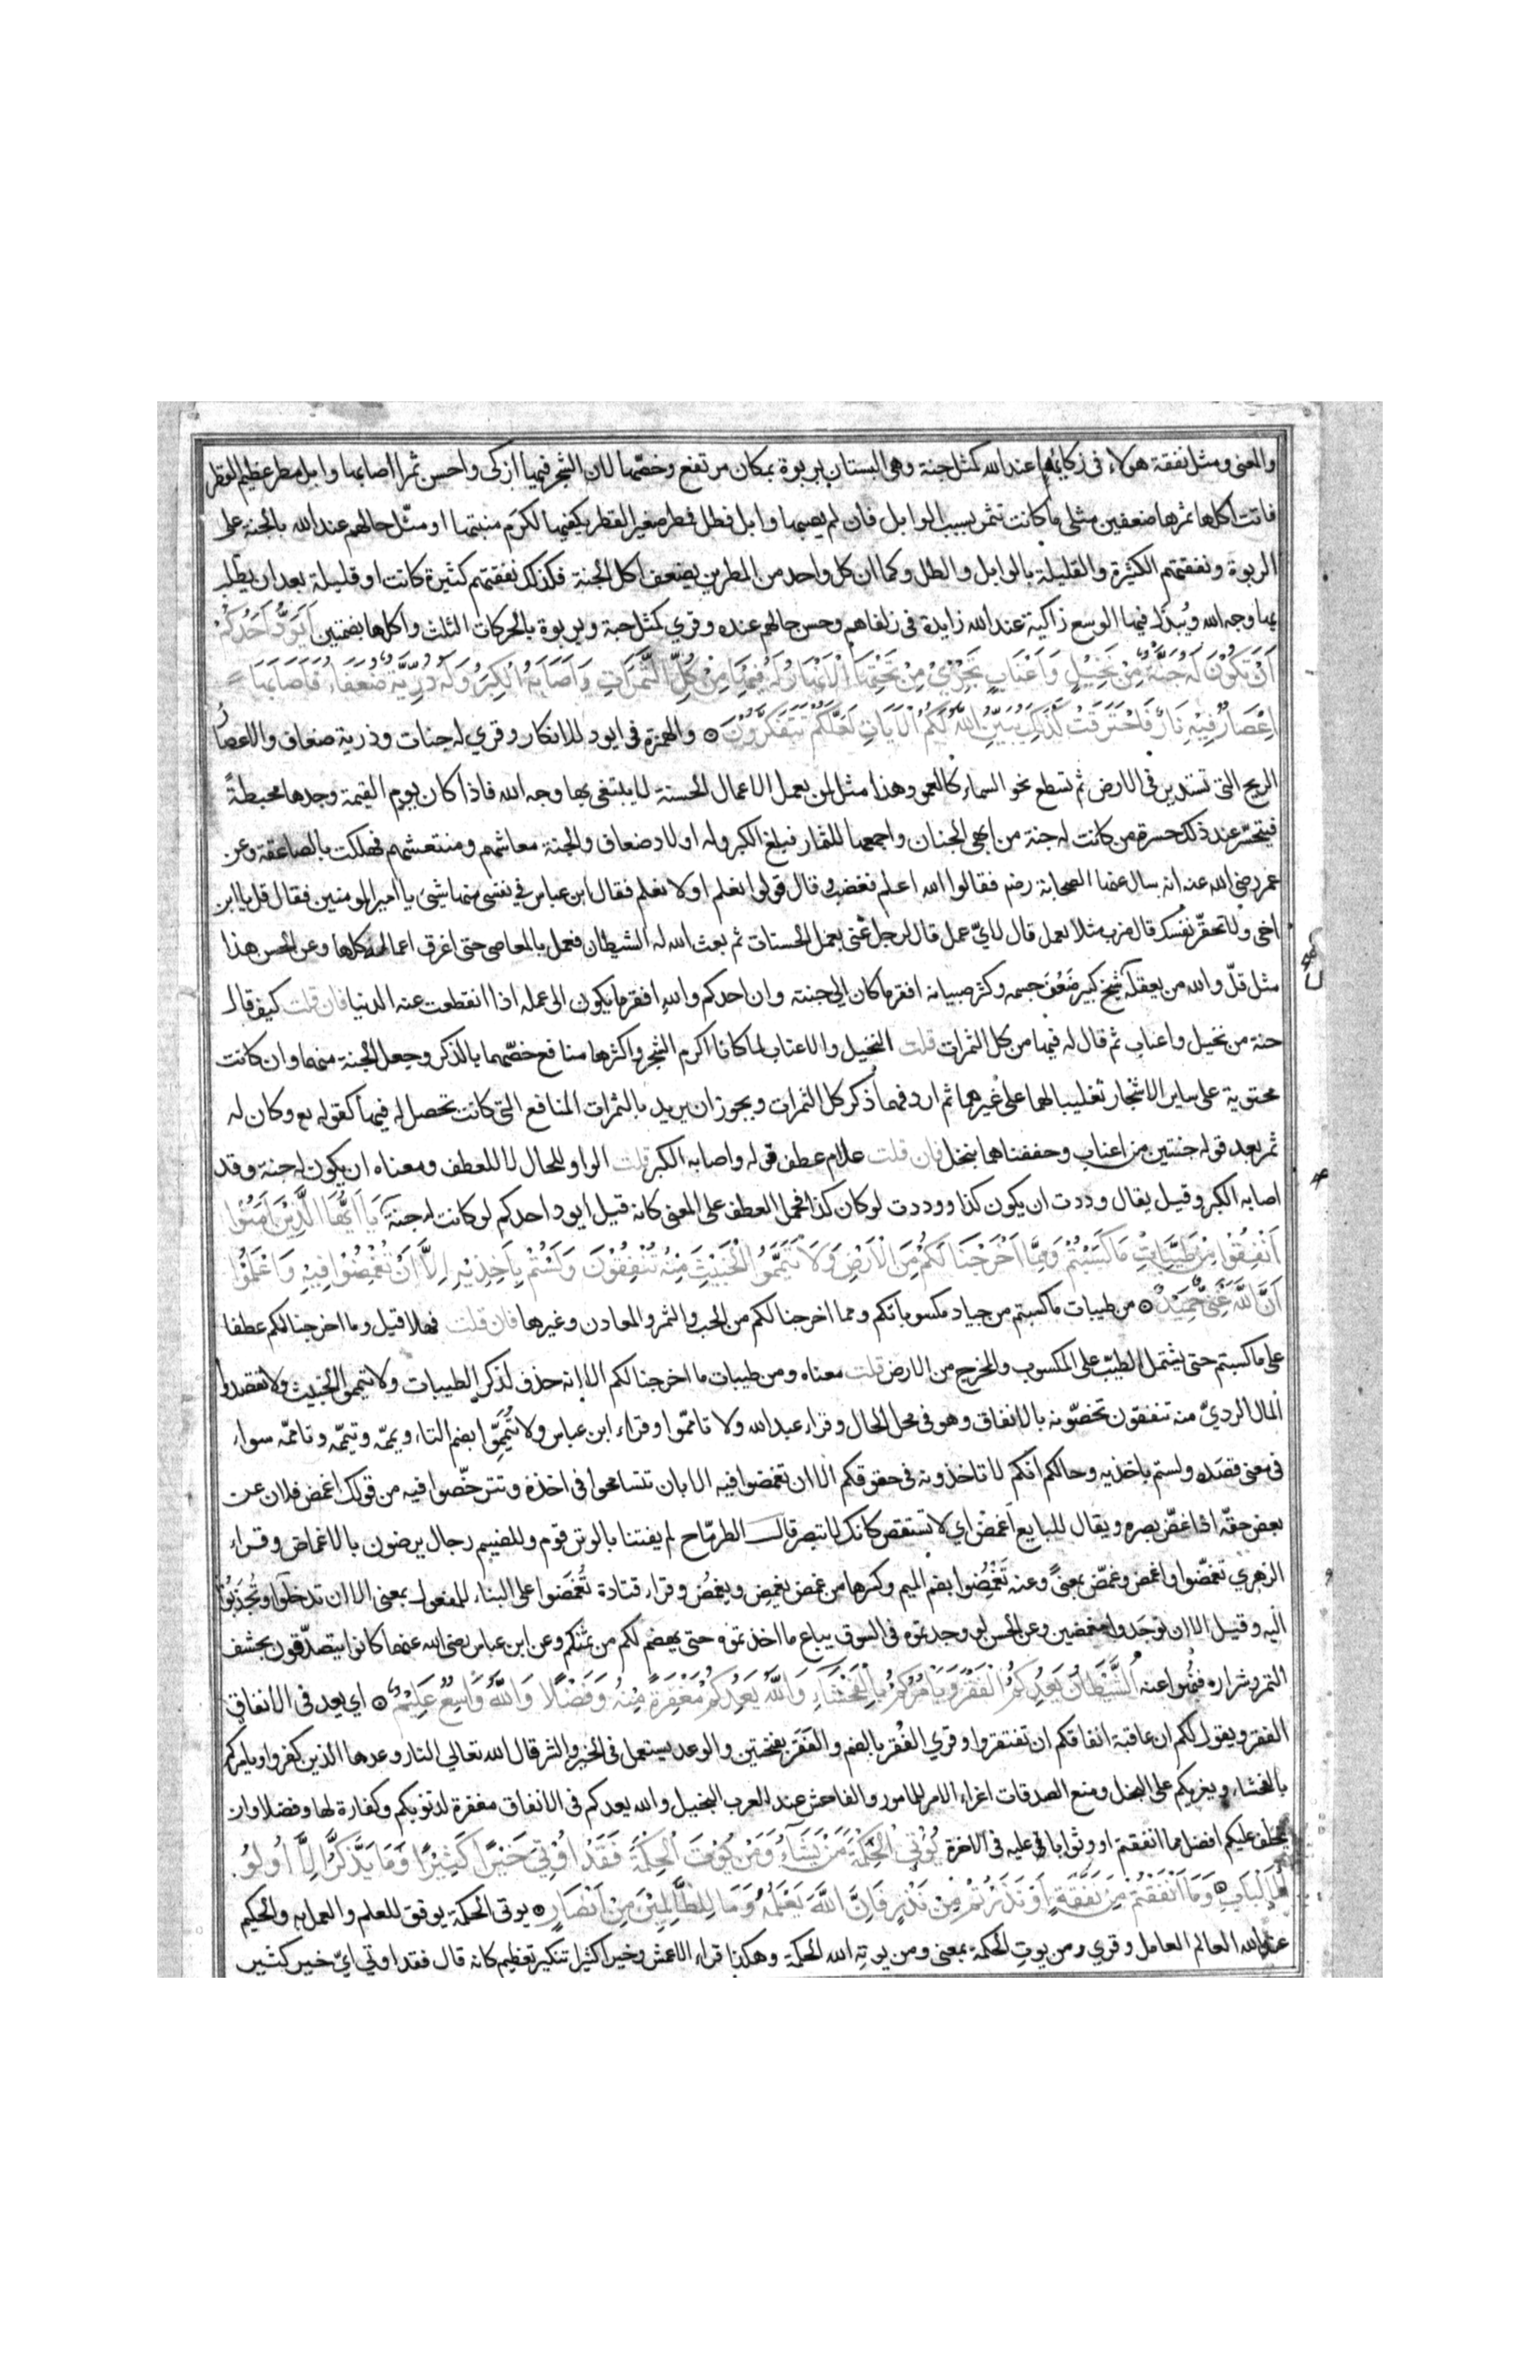 والمعنى ومثل نفقة هولاء فى زكائها عند الله كمثل جنة وهى البستان بربوة بمكان مرتفع وخصّها لان الشجر فيها ازكى واحسن ثمرا اصابها وابل مطر عظيم القطر
فاتت اكلها ثمرها ضعفين مثلى ما كانت تثمر بسبب الوابل فان لم يصبها وابل فطل فمطر صغير القطر يكفيها لكرم منبتها او مثّل حالهم عند الله بالجنة على
الربوة ونفقتهم الكثيرة والقليلة بالوابل والطل وكما ان كل واحد من المطرين يضعف اكل الجنة فكذلك نفقتهم كثيرة كانت او قليلة بعد ان يطلب
بها وجه الله ويُبذل فيها الوسع زاكية عند الله زايدة فى زلفاهم وحسن حالهم عنده وقري كمثل حبة وبربوة بالحركات الثلث واكلها بضمتين اَيَوَدُّ اَحَدُكُمْ
اَنْ تَكُوْنَ لَهُ جَنَّةٌ مِّنْ نَّخِيْلٍ وَاَعْنَابٍ تَجْرِيْ مِنْ تَحْتِهَا الْاَنْهَارُ لَهُ فِيْهَا مِنْ كُلِّ الثَّمَرَاتِ وَاَصَابَهُ الْكِبَرُ وَلَهُ ذُرِّيَّةٌ ضُعَفَاءُ فَاَصَابَهَا
اِعْصَارٌ فِيْهِ نَارٌ فَاحْتَرَقَتْ كَذٰلِكَ يُبَيِّنُ اللّٰهُ لَكُمُ الْاٰيَاتِ لَعَلَّكُمْ تَتَفَكَّرُوْنَ ۝ والهمزة فى ايود للانكار وقري له جنات وذرية ضعاف والاعصارُ
الريح التى تستدير فى الارض ثم تسطع نحو السماء كالعمود وهذا مثل لمن يعمل الاعمال الحسنة لا يبتغى بها وجه الله فاذا كان يوم القيمة وجدها محبطةً
فيتحسّر عند ذلك حسرة من كانت له جنة من ابهى الجنان واجمعها للثمار فبلغ الكبر وله اولاد ضعاف والجنة معاشهم ومنتعشهم فهلكت بالصاعقة وعن
عمر رضى الله عنه انه سال عنها الصحابة رضم فقالوا الله اعلم فغضب وقال قولوا نعلم او لا نعلم فقال ابن عباس فى نفسى منها شيئ يا امير المومنين فقال قل يا ابن
اخى ولا تحقّر نفسك قال ضرب مثلا لعمل قال لايّ عمل قال لرجل غنى يعمل الحسنات ثم بعث الله له الشيطان فعمل بالمعاصى حتى اغرق اعماله كلها وعن الحسن هذا
مثل قلّ والله من يعقله شيخ كبير ضَعُفَ جسمه وكثر صبيانه افقر ما كان الى جنته وان احدكم والله افقر ما يكون الى عمله اذا انقطعت عنه الدنيا فان قلت كيف قال
جنة من نخيل واعناب ثم قال له فيها من كل الثمرات قلت النخيل والاعناب لما كانا اكرم الشجر واكثرها منافع خصّهما بالذكر وجعل الجنة منهما وان كانت
محتوية على ساير الاشجار تغليبا لهما على غيرهما ثم اردفهما ذكر كل الثمرات ويجوز ان يريد بالثمرات المنافع التى كانت تحصل له فيها كقوله تع وكان له
ثمر بعد قوله جنتين من اعناب وحففناهما بنخل فان قلت علام عطف قوله واصابه الكبر قلت الواو للحال لا للعطف ومعناه ان يكون له جنة وقد
اصابه الكبر وقيل يقال وددت ان يكون كذا ووددت لو كان كذا فحمل العطف على المعنى كانه قيل ايود احدكم لو كانت له جنة يَا اَيُّهَا الَّذِيْنَ اٰمَنُوْا
اَنْفِقُوْا مِنْ طَيِّبَاتِ مَا كَسَبْتُمْ وَمِمَّا اَخْرَجْنَا لَكُمْ مِنَ الْاَرْضِ وَلَا تَيَمَّمُوا الْخَبِيْثَ مِنْهُ تُنْفِقُوْنَ وَلَسْتُمْ بِاٰخِذِيْهِ اِلَّا اَنْ تُغْمِضُوْا فِيْهِ وَاعْلَمُوْا
اَنَّ اللّٰهَ غَنِيٌّ حَمِيْدٌ ۝ من طيبات ما كسبتم من جياد مكسوباتكم ومما اخرجنا لكم من الحب والثمر والمعادن وغيرها فان قلت فهلا قيل وما اخرجنا لكم عطفا
على ما كسبتم حتى يشتمل الطيب على المكسوب والمخرج من الارض قلت معناه ومن طيبات ما اخرجنا لكم الا انه حذف لذكر الطيبات ولا تيمموا الخبيث ولا تقصدوا
المال الرديّ منه تنفقون تخصّونه بالانفاق وهو فى محل الحال وقراء عبد الله ولا تاممّوا وقراء ابن عباس ولا تُيَمِّمُوا بضم التاء ويممّه وتيممّه وتاممّه سواء
فى معنى قصده ولستم باخذيه وحالكم انكم لا تاخذونه فى حقوقكم الا ان تغمضوا فيه الا بان تتسامحوا فى اخذه وتترخّصوا فيه من قولك اغمض فلان عن
بعض حقّه اذا غضّ بصره ويقال للبايع اَغمِضْ اي لا تستقص كانك لا تبصر قال الطرمّاح لم يفتنا بالوتر قوم وللضيم رجال يرضون بالاغماض وقراء
الزهري تغمّضوا واغمض وغمّض بمعنىً وعنه تَغْمُضِوا بضم الميم وكسرها من غمض يغمِض ويغمُض وقراء قتادة تُغْمَضوا على البناء للمفعول بمعنى الا ان تدخلوا وتُجذبُوا
اليه وقيل الا ان توجدوا مغمضين وعن الحسن لو وجدتموه فى السوق يباع ما اخذتموه حتى يهضم لكم من ثمنكم وعن ابن عباس رضى الله عنهما كانوا يتصدّقون بحشف
التمر وشراره فنُهوا عنه اَلشَّيْطَانُ يَعِدُكُمُ الْفَقْرَ وَيَاْمُرُكُمْ بِالْفَحْشَاءِ وَاللّٰهُ يَعِدُكُمْ مَغْفِرَةً مِنْهُ وَفَضْلًا وَاللّٰهُ وَاسِعٌ عَلِيْمٌ ۝ اي يعد فى الانفاق
الفقر ويقول لكم ان عاقبة انفاقكم ان تفتقروا وقري الفُقْر بالضم والفَقَر بفتحتين والوعد يستعمل فى الخير والشر قال الله تعالى النار وعدها الذين كفروا ويامركم
بالفحشاء ويغريكم على البخل ومنع الصدقات اغراء الامر للمامور والفاحش عند العرب البخيل والله يعدكم فى الانفاق مغفرة لذنوبكم وكفارة لها وفضلا وان
يخلف عليكم افضل مما انفقتم او وثوابا عليه فى الاخرة يُؤْتِى الْحِكْمَةَ مَنْ يَشَاءُ وَمَنْ يُؤْتَ الْحِكْمَةَ فَقَدْ اُوْتِيَ خَيْرًا كَثِيْرًا وَمَا يَذَّكَّرُ اِلَّا اُولُو
الْاَلْبَابِ ۝ وَمَا اَنْفَقْتُمْ مِنْ نَفَقَةٍ اَوْ نَذَرْتُمْ مِنْ نَذْرٍ فَاِنَّ اللّٰهَ يَعْلَمُهُ وَمَا لِلظَّالِمِيْنَ مِنْ اَنْصَارٍ ۝ يوتى الحكمة يوفق للعلم والعمل به والحكيم
عند الله العالم العامل وقري ومن يوتِ الحكمة بمعنى ومن يوته الله الحكمة وهكذا قراء الاعمش وخيرا كثيرا تنكير تعظيم كانه قال فقد اوتي ايّ خير كثير